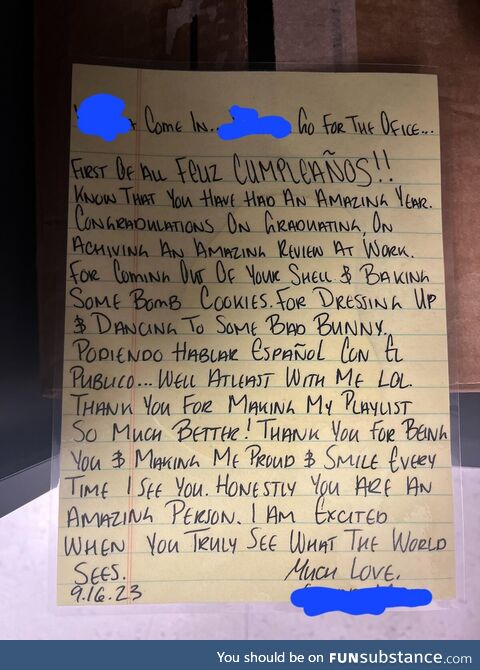 Come In.. Go For The Ofice...
First Of All Feliz Cumpleaños!!
Know That You Have Had An Amazing Year.
Congradulations On Graduating, On
Achiving An Amazing Review At Work.
For Coming Out Of Your Shell & Baking
Some Bomb Cookies. For Dressing Up
& Dancing To Some Bad Bunny.
Podiendo Hablar Español Con El
Publico... Well Atleast With Me Lol.
Thank You For Making My Playlist
So Much Better! Thank You For Being
You & Making Me Proud & Smile Every
Time I See You. Honestly You Are An
Amazing Person. I Am Excited
When You Truly See What The World
Sees. Much Love.
9.16.23
You should be on FUNsubstance.com